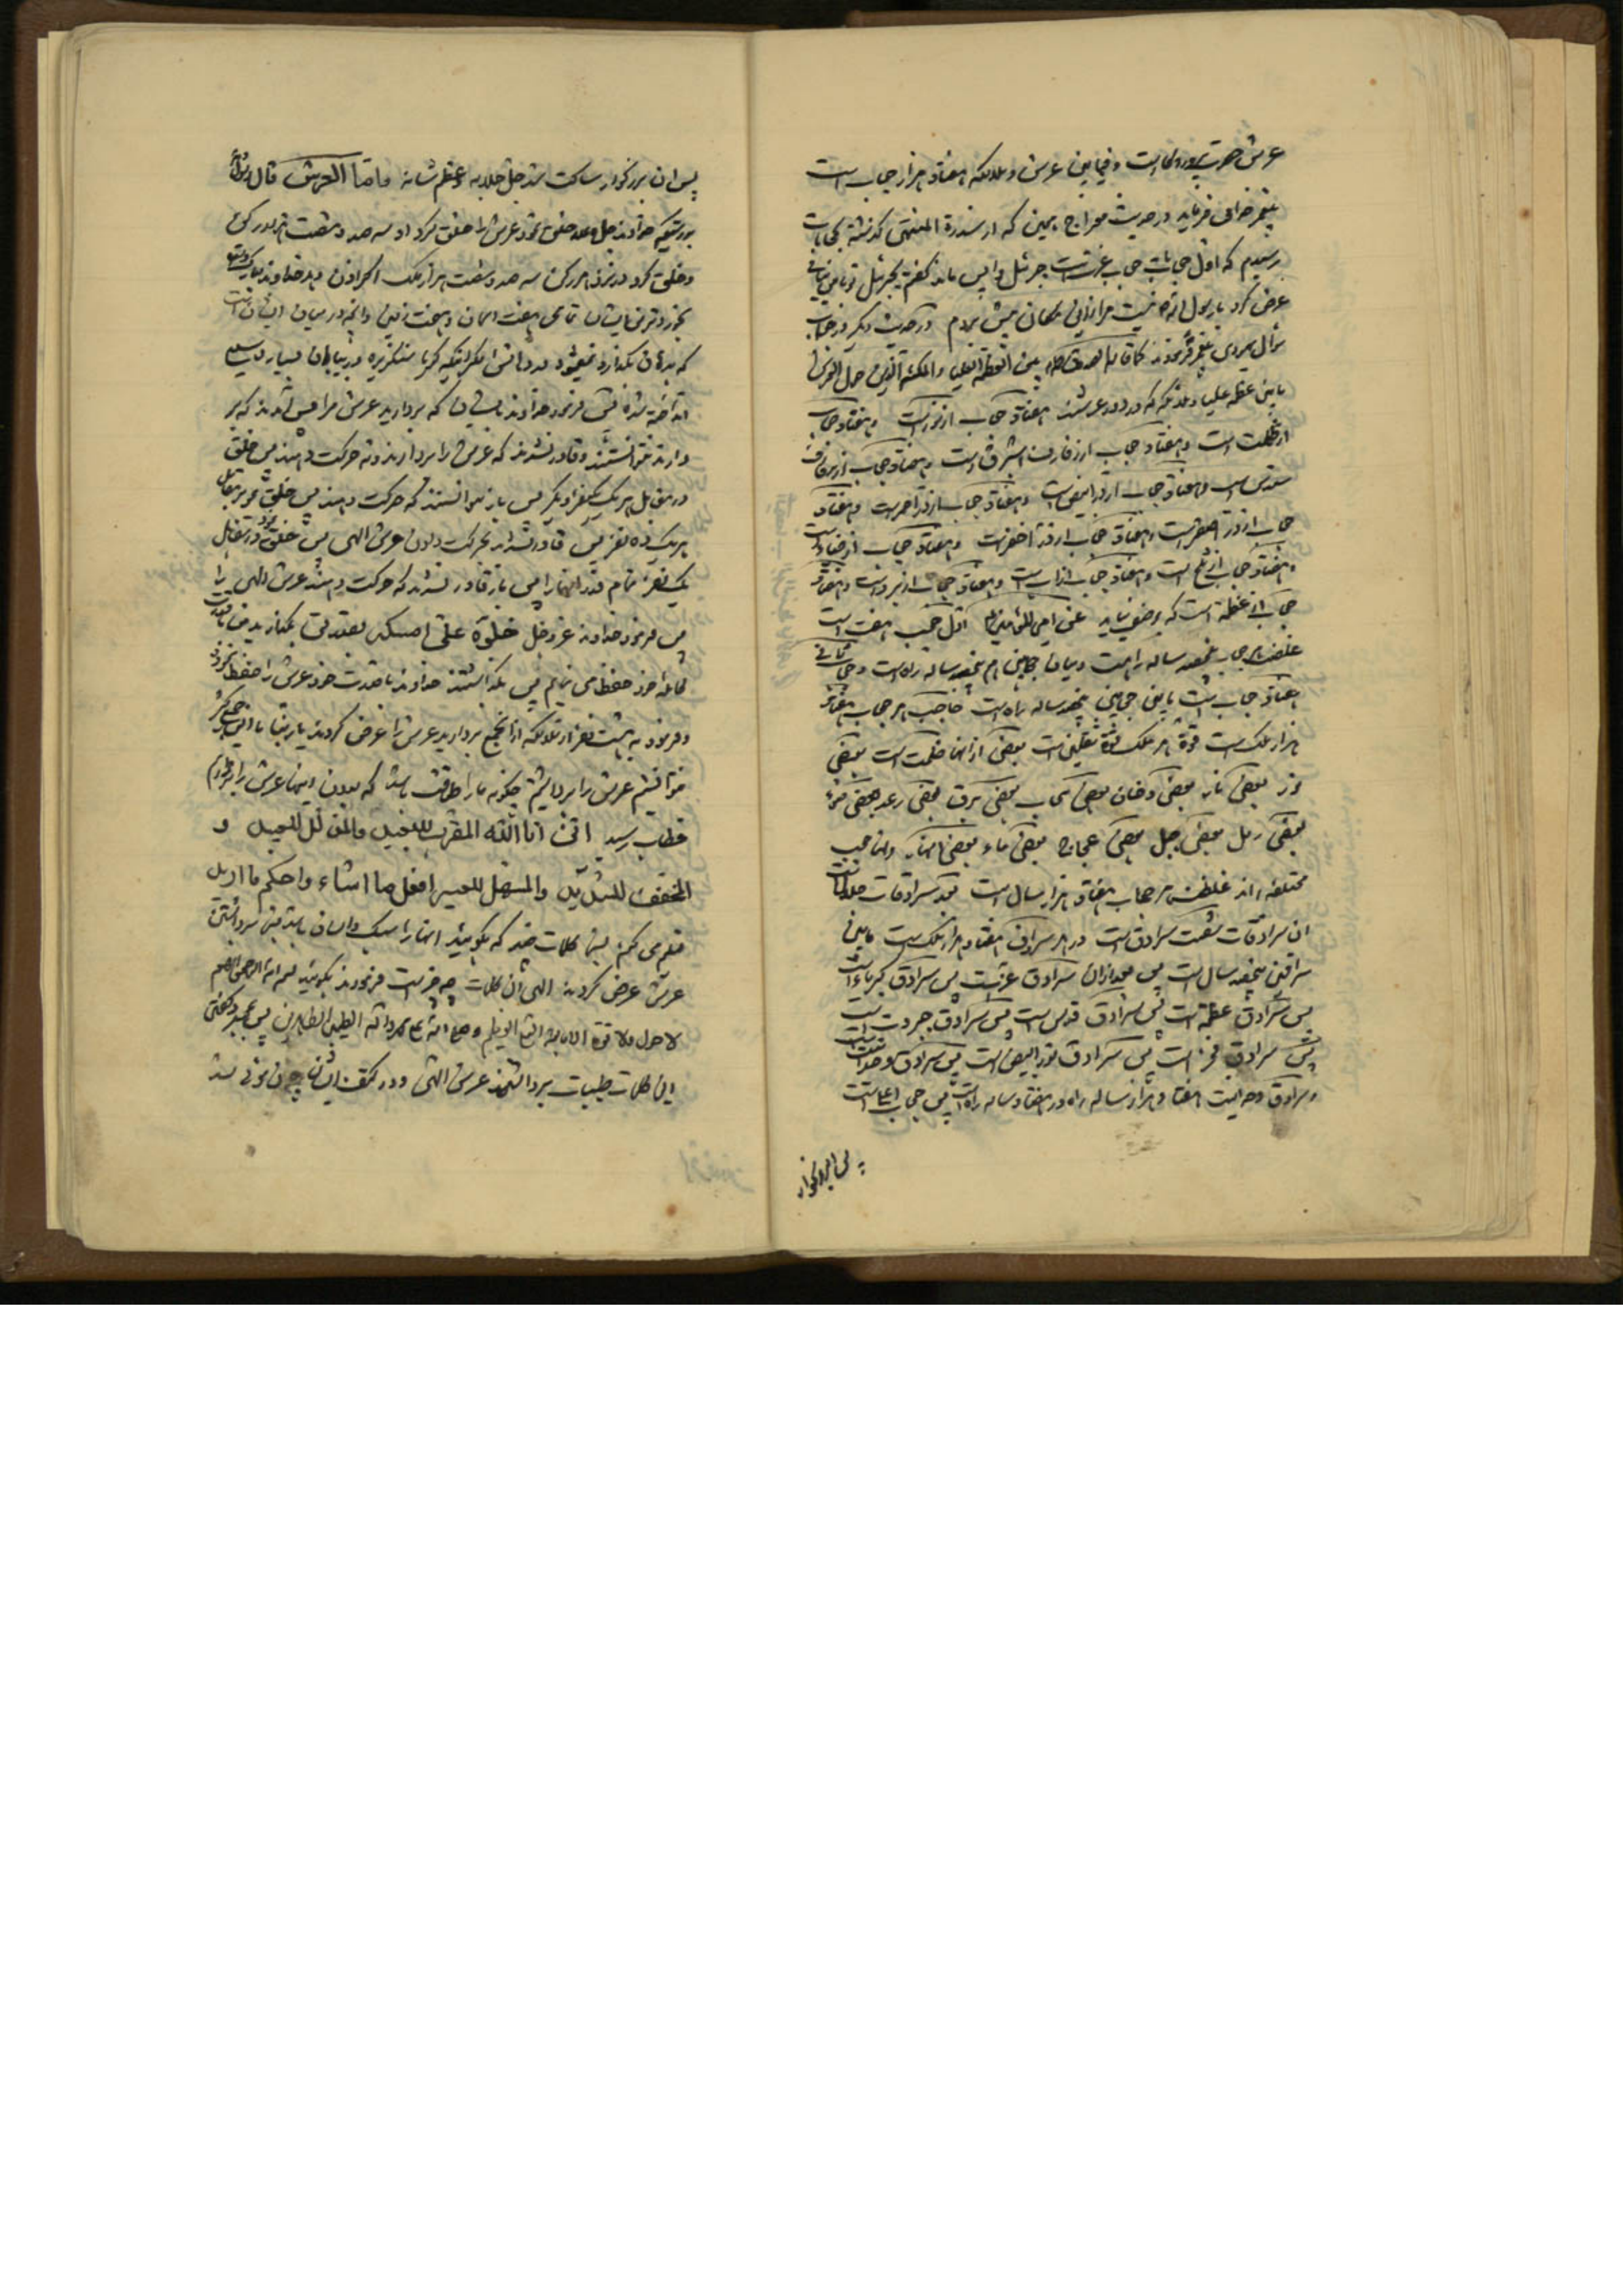 عرش حضرت پروردگار است و فیمابین عرش و ملائکه هفتاد هزار حجاب است
پیغمبر خدا می فرماید در حدیث معراج همین که از سدرة المنتهی گذشته بحجابات
رسیدم که اول حجابات حجاب عزت است جبرئیل واپس ماند گفتم یا جبرئیل تو با من نیائی
عرض کرد یا رسول الله نیست مرا از این مکان پیش بروم و در حدیث دیگر از حجاب
سؤال فرمودند کما قاله الصدوق بین العظمة العلیا والملئکة الذین حول العرش
مابین عظمة علیا و ملائکه که در دور عرشند هفتاد حجاب از نور است و هفتاد حجاب
از ظلمت است و هفتاد حجاب از رفارف استبرق است و هفتاد حجاب از رفارف
سندس است و هفتاد حجاب از در ابیض است و هفتاد حجاب از در احمر است و هفتاد
حجاب از در اصفر است و هفتاد حجاب از در اخضر است و هفتاد حجاب از ضیاء است
و هفتاد حجاب از ثلج است و هفتاد حجاب از آب است و هفتاد حجاب از برد است و هفتاد
حجاب از عظمة است که بوصف نیاید عن امیر المؤمنین اول حجب هفت است
غلظت هر حجاب پانصد ساله راه است و میان حجابین هم پانصد ساله راه است و حجاب ثانی
هفتاد حجاب است مابین حجابین پانصد ساله راه است حاجب هر حجاب هفتاد
هزار ملک است قوة هر ملک قوة ثقلین است بعضی از انها ظلمت است بعضی
نور بعضی نار بعضی دخان بعضی سحاب بعضی برق بعضی رعد بعضی ضوء
بعضی رمل بعضی جبل بعضی عجاج بعضی ماء بعضی انهار و انها حجب
مختلفه اند غلظت هر حجاب هفتاد هزار سال است بعد سرادقات جلال است
ان سرادقات شصت سرادق است در هر سرادق هفتاد هزار ملک است مابین
سرادقین پانصد سال است پس بعد از ان سرادق عزت است پس سرادق کبریاء است
پس سرادق عظمة است پس سرادق قدس است پس سرادق جبروت است
پس سرادق فخر است پس سرادق نور ابیض است پس سرادق وحدانیت است
و سرادق وحدانیت هفتاد هزار ساله راه در هفتاد ساله راه است پس حجاب اعلی است
پس ان بزرگوار
پس ان بزرگوار ساکت شد جل جلاله و عظم شانه واما العرش قال
بدرستیکه خداوند خلق نمود عرش را خلق کرد از سه صد و شصت هزار رکن
و خلق کرد در نزد هر رکن سه صد و شصت هزار ملک اگر اذن دهد خداوند
بخوردترین ایشان تمامی هفت اسمان و هفت زمین و انچه در میان ایشان است
که بدهان بگذارد نمیشود در دهانش مگر اینکه گویا سنگریزه در بیابان بسیار
انداخته شده پس فرمود خداوند بایشان که بردارید عرش مرا پس آمدند که بر
دارند نتوانستند و قادر نشدند که عرش را بردارند و نه حرکت دهند پس خلق
در مقابل هر یک یکنفر دیگر پس باز نتوانستند که حرکت دهند پس خلق نمود مقابل
هر یک ده نفر پس قادر نشدند بحرکت دادن عرش الهی پس خلق نمود در مقابل
یک نفر تمام قدر انها را پس باز قادر نشدند که حرکت دهند عرش الهی را
پس فرمود خداوند عز وجل خلوه علی امسکه بقدرتی بگذارید من بقدرت
کامله خود حفظ می نمایم پس بگذاشتند خداوند با قدرت خود عرش را حفظ نمود
و فرمود به هشت نفر از ملائکه از انجمع بردارید عرش را عرض کردند یا ربنا با این جمع کثیر
نتوانستیم عرش را برداشتیم چگونه ما را طاقت باشد که بدون اینها عرش را برداریم
خطاب رسید انی انا الله المقرب للبعید والمذلل للعبید و
المخفف للشدید والمسهل للعسیر افعل ما اشاء و احکم ما ارید
تعلیم می کنم بشما کلمات چند که بگویید انها را سبک و اسان باشد بشما برداشتن
عرش عرض کردند الهی آن کلمات چه چیز است فرمودند بگویید بسم الله الرحمن الرحیم
لا حول ولا قوة الا بالله العلی العظیم و صلی الله علی محمد و آله الطیبین الطاهرین پس بمجرد گفتن
این کلمات طیبات برداشتند عرش الهی و در کتف ایشان چون موئی شد